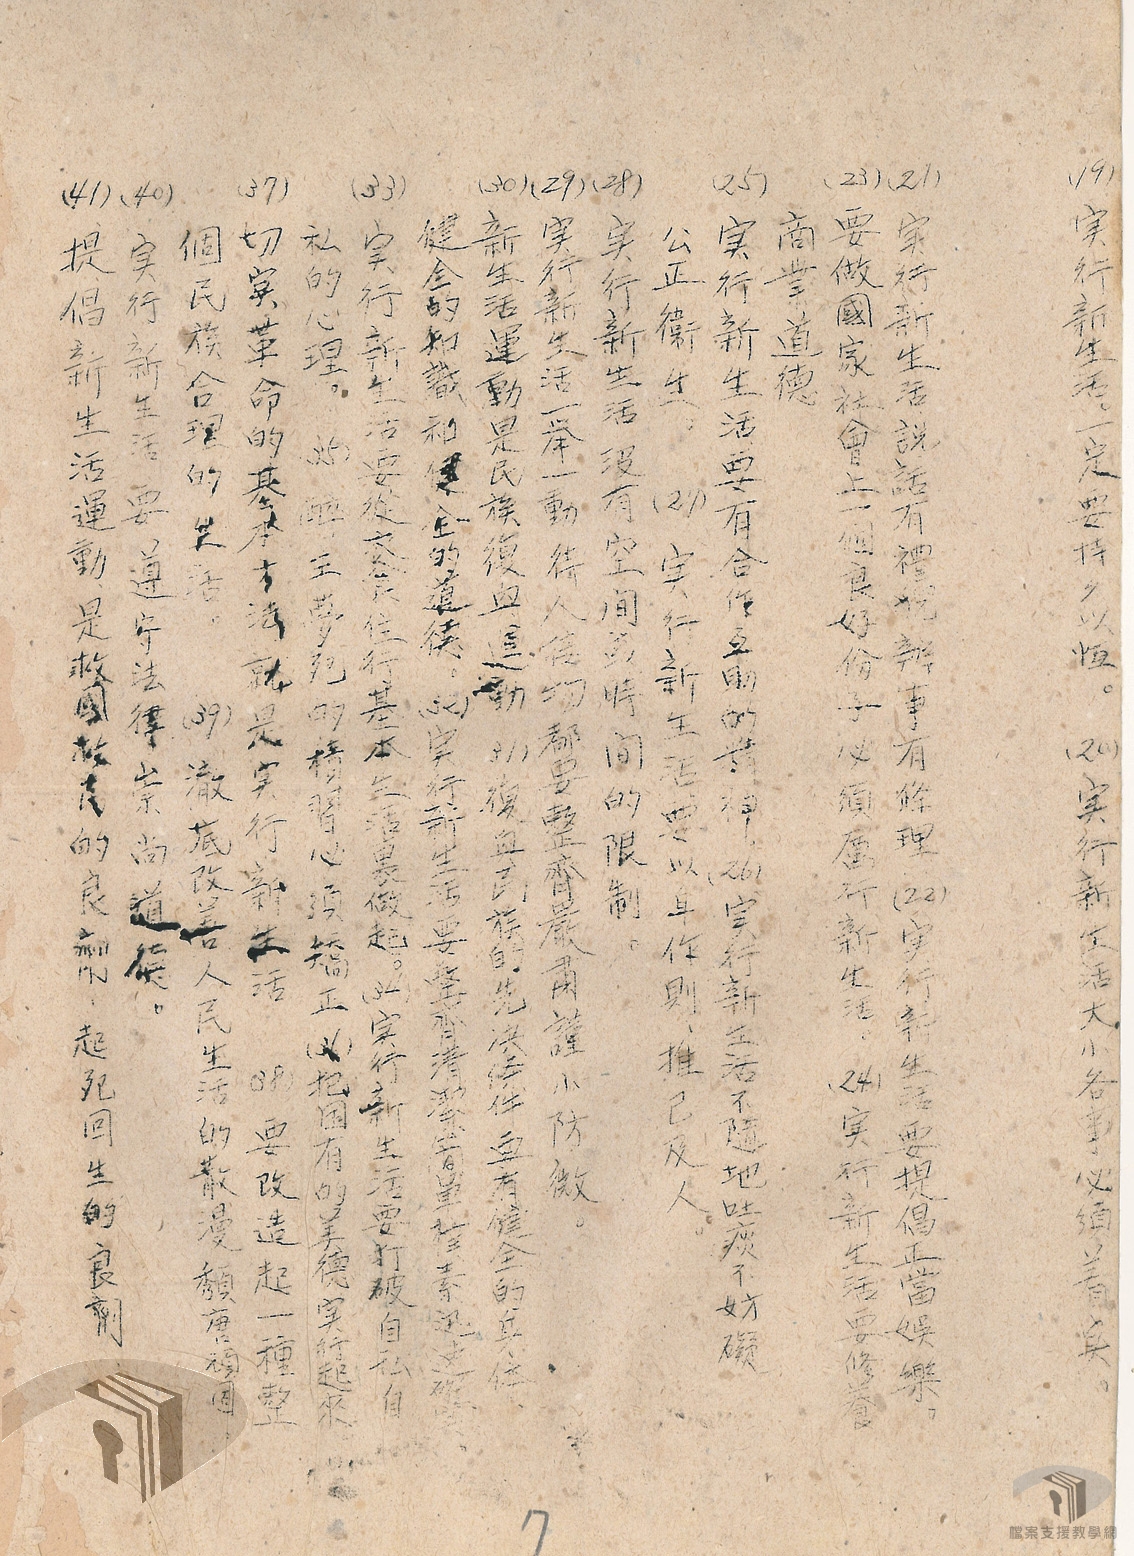 (19) 実行新生活。一定要持久以恆。 (20) 実行新生活大小各事必須着実。
(21) 実行新生活說話有禮貌辦事有條理 (22) 実行新生活要提倡正當娛樂。
(23) 要做國家社會上一個良好份子必須厲行新生活。 (24) 実行新生活要修養
商業道德
(25) 実行新生活要有合作互助的精神 (26) 実行新生活不隨地吐痰不妨礙
公正衛生。 (27) 実行新生活要以身作則、推己及人。
(28) 実行新生活沒有空间或時间的限制。
(29) 実行新生活一举一動待人 物都要整齊嚴肅謹小防微。
(30) 新生活運動是民族復血運動 (31) 復血民族的先决条件 要有健全的
健全的知識和健全的道德。 (32) 実行新生活要整齊清潔 素迅速確実。
(33) 実行新生活要從衣食住行基本生活裏做起。 (34) 実行新生活要打破自私自
私的心理。 (35) 醉生夢死的積習必須矯正 (36) 把固有的美德実行起來
(37) 切実革命的基本方法就是実行新生活 (38) 要改造起一種整
個民族合理的生活。 (39) 澈底改善人民生活的散漫頹唐頑固
(40) 実行新生活要遵守法律崇尚道德。
(41) 提倡新生活運動是救國救民的良劑、起死回生的良劑
7
檔案支援教學網